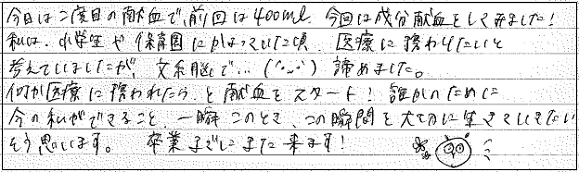 今日は二度目の献血で、前回は400ml、今回は成分献血をしてみました！
私は、小学生や保育園にかよっていた頃、医療に携わりたいと
考えていましたが、文系脳で…(^-^;) 諦めました。
何か医療に携われたら、と献血をスタート！ 誰かのために
今の私ができること、一瞬 このとき、この瞬間を大切に生きていきたい
そう思います。 卒業までにまた来ます！